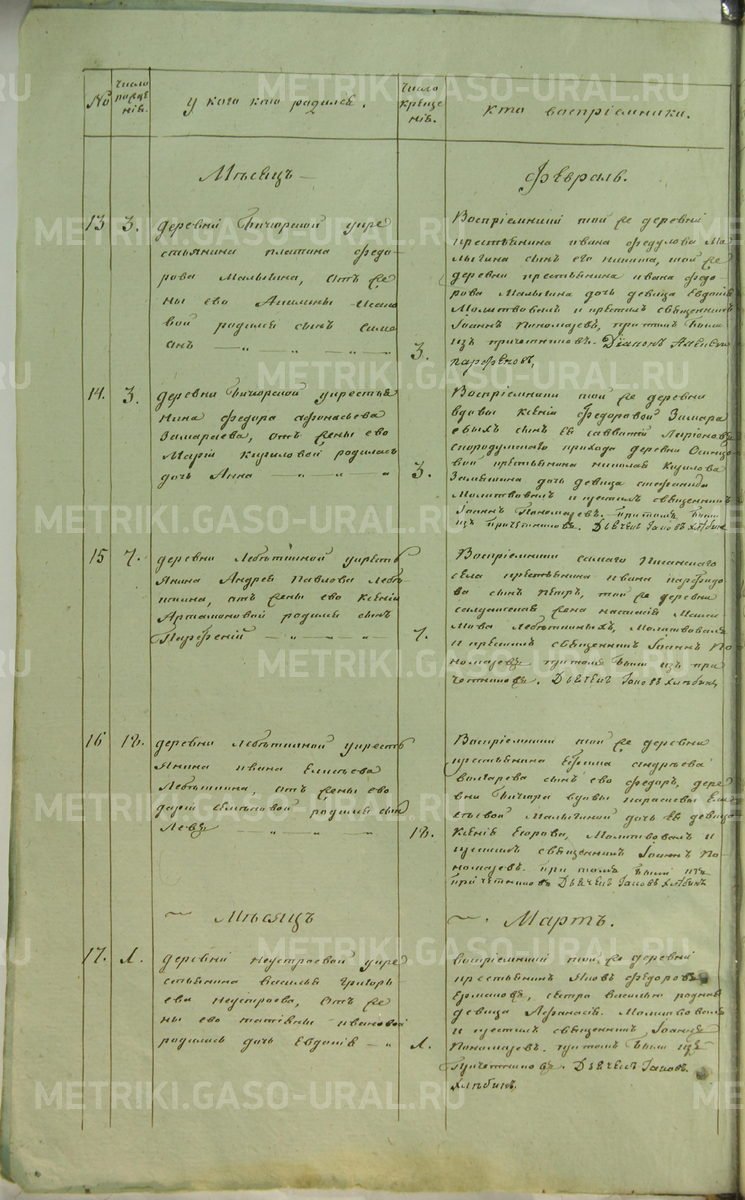 №
число рожде нiя.
у кого кто родился.
число креще нiя.
кто воспрiемники.
Мѣсяцъ
Февраль.
13
3.
деревни Бичурской у кре
стьянина Платона Федо
рова Малыгина, отъ же
ны его
вой родился сынъ Симе
онъ
3.
Воспрiемники той же деревни
крестьянина Ивана Федулова Ма
лыгина сынъ его Никита, той же
деревни крестьянина Ивана Федо
рова Малыгина дочь девица Евдокiя
Молитвовалъ и крестилъ священникъ
Iоаннъ Пономаревъ, притомъ были
изъ причетниковъ. Дiаконъ Алексей
Парфеновъ,
14.
3.
деревни Бичурской у крестья
нина Федора Афонасьева
Замараева, отъ жены его
Марiи Кириловой родилась
дочь Анна
3.
Воспрiемники той же деревни
вдовы Ксенiи Федоровой Замара
евыхъ сынъ её Савватiй Ларiоновъ
прихода деревни
вой крестьянина Николая Кирилова
дочь девица Степанида
Молитвовалъ и крестилъ священникъ
Iоаннъ Пономаревъ. Притомъ были
изъ причетниковъ. Дьячекъ Iаковъ Хлѣбинъ
15
7.
деревни Лебѣткиной у кресть
янина Андрея Павлова Лебѣ
ткина, отъ жены его Ксенiи
Артамоновой родился сынъ
Парфенiй
7.
Воспрiемники самаго Писанскаго
села крестьянина Ивана
ва сынъ Петръ, той же деревни
солдатская жена Настасiя
мова Лебѣткиныхъ, Молитвовалъ
и крестилъ священникъ Iоаннъ По
номаревъ притомъ были изъ при
четниковъ. Дьячекъ Iаковъ Хлѣбинъ
16
18.
деревни Лебѣткиной у кресть
янина Ивана Елисѣева
Лебѣткина, отъ жены его
Дарiи родился сынъ
Левъ
18.
Воспрiемники той же деревни
крестьянина Ефима Андреева
сынъ его Федоръ, дере
вни Бичура вдовы Парасковьи Ели
сѣевой Малыгиной дочь её девица
Ксенiя Егорова, Молитвовалъ и
крестилъ священникъ Iоаннъ По
номаревъ. притомъ были изъ
причетниковъ Дьячекъ Iаковъ Хлѣбинъ
Мѣсяцъ
Мартъ.
17.
1.
деревни Неустроевой у кре
стьянина Василья Григорь
ева Неустроева, отъ же
ны его Татiяны Ивановой
родилась дочь Евдокiя
1.
Воспрiемники той же деревни
крестьянинъ Яковъ Федоровъ
сестра Василью родная
девица Афанасiя. Молитвовалъ
и крестилъ священникъ, Iоаннъ
Пономаревъ. притомъ были изъ
причетниковъ. Дьячекъ Iаковъ.
Хлѣбинъ.
METRIKI.GASO-URAL.RU